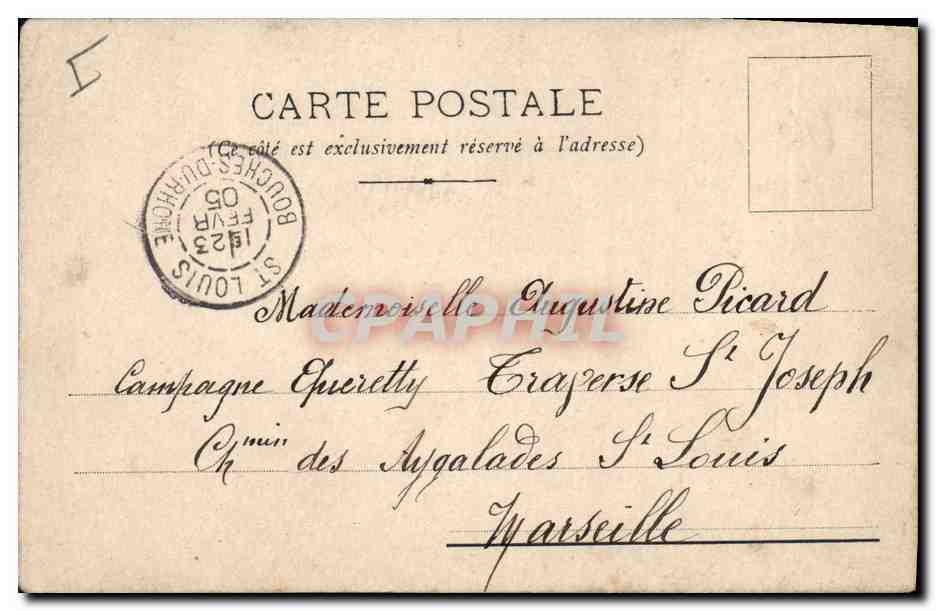 CARTE POSTALE
(Ce côté est exclusivement réservé à l'adresse)
ST LOUIS
23
FEVR
05
BOUCHES-DU-RHONE
Mademoiselle Augustine Picard
CPAPHIL
Campagne Traverse St Joseph
Chmin des Aygalades St Louis
Marseille